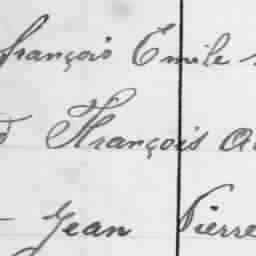 françois Emile
François
Jean Pierre